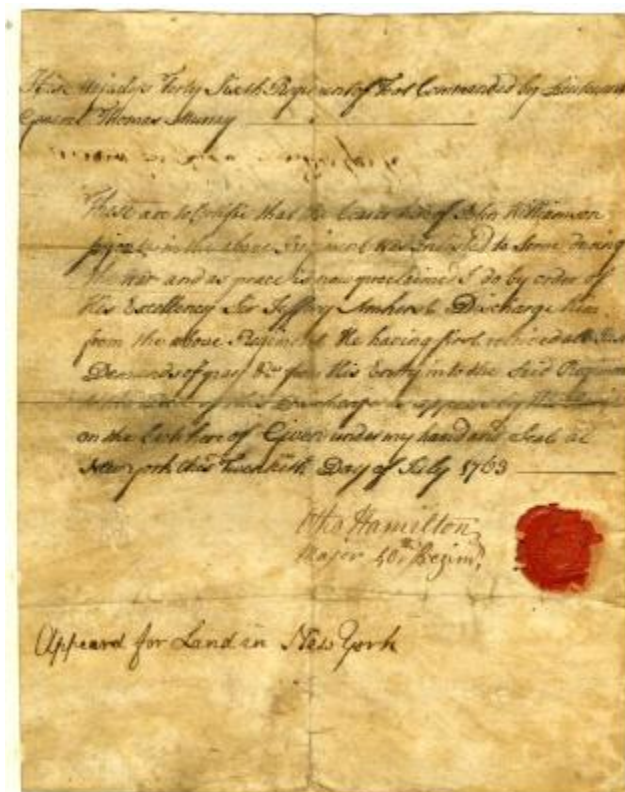 His Majestys Forty Sixth Regiment of Foot Commanded by Lieutenant
General Thomas Murray
These are to Certifie that the bearer hereof John Williamson
private in the above Regiment was Enlisted to Serve during
the War and as peace is now proclaimed I do by order of
His Excellency Sir Jeffery Amherst Discharge him
from the above Regiment He having first received all
Demands of pay &ca from His Entry into the Said Regiment
to the Date of this Discharge as appears by the
on the back here of Given under my hand and Seal at
New york this Twentieth Day of July 1763
Otho Hamilton
Major 40th Regimt
Appeard for Land in New York